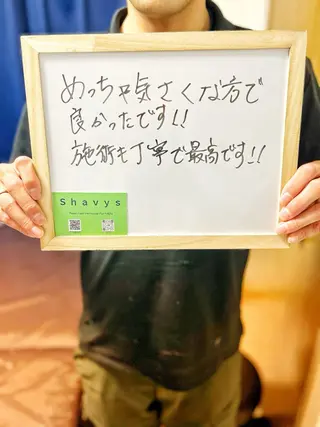 めっちゃ気さくな方で
良かったです!!
施術も丁寧で最高です!!
Shavys